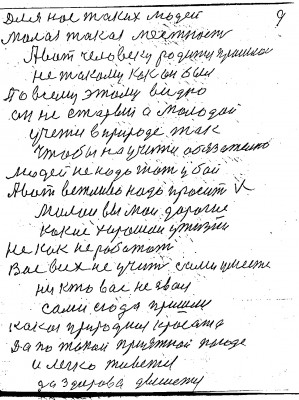 9
Для нас таких людей
Малая такая местность
А вот человеку родится пришлось
не такому как он был
По всему этому видно
он не старый а молодой
учится в природе так
Чтобы научится обязательно
людей не надо
А вот вежливо надо просить
Милаи вы маи дорогие
какие хорошаи у жизни
Не как не работат
Вас всех не учит сами умеете
ни кто вас не звал
сами сюда пришли
какая природная красата
Да по такой приятной погоде
и легко живется
да здорова дышется